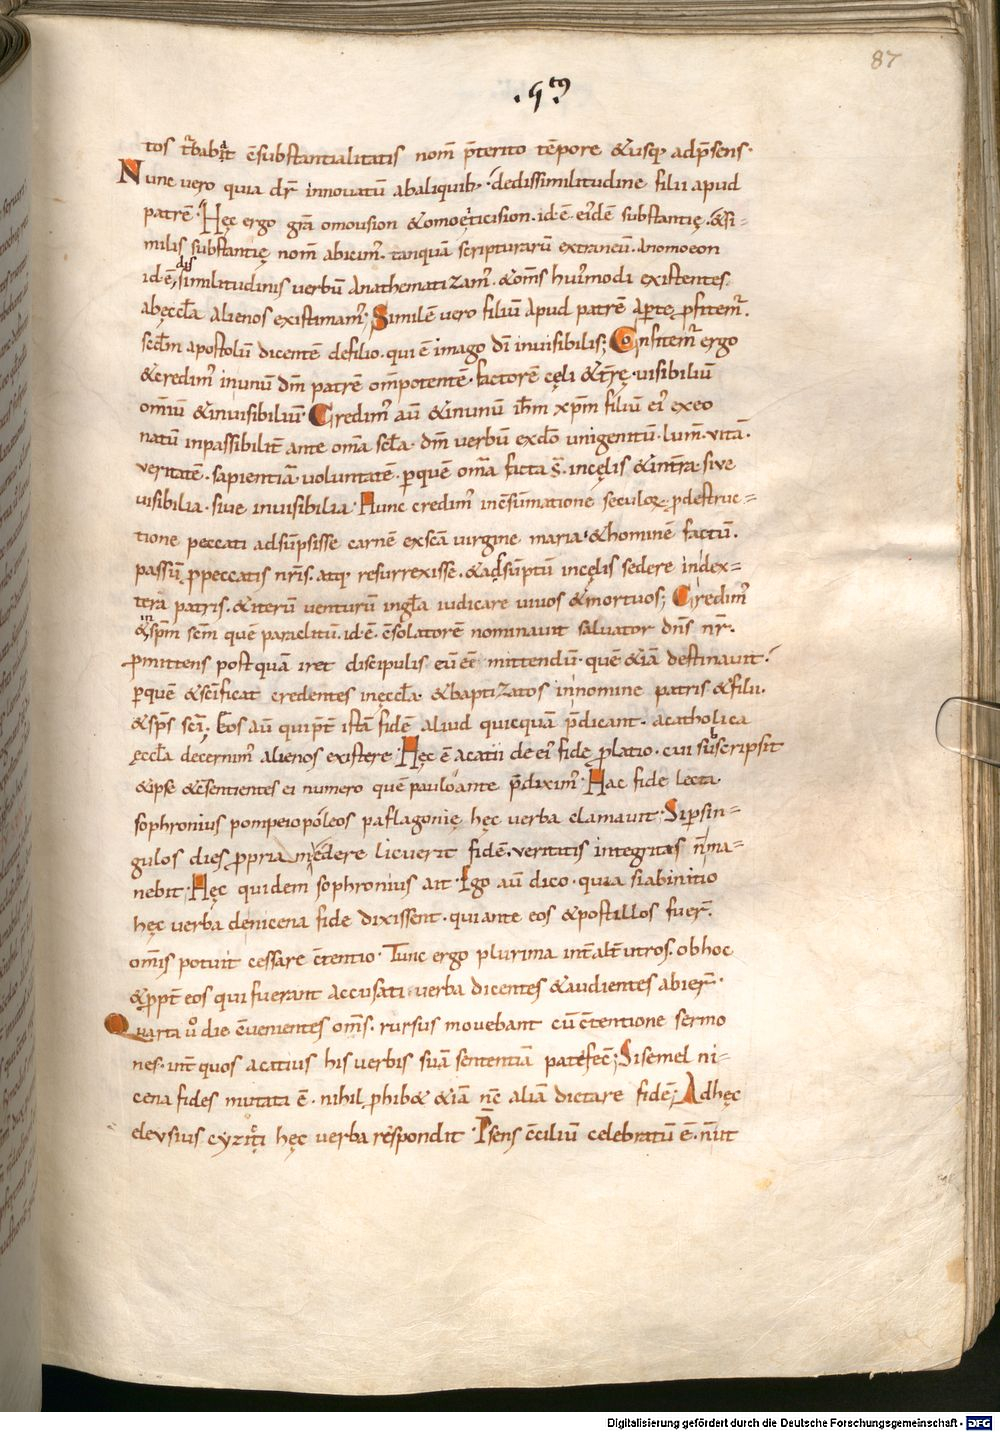 87
.q̃.
tos t̄babat c̄substantialitatis nom̄ p̄terito tēpore &usq; adp̄sens.
Nunc vero quia dr̄ innovatū abaliquib; dedissimilitudine filii apud
patrē. Hęc ergo grā omousion &omoeticision. id ē. ei'dē substantię. &si-
milis substantię nom̄ abicim'. tanquā scripturarū extraneū. Anomoeon
id ē, dissimilitudinis verbū Anathematizam'. &om̄s hui'modi existentes
abęccl̄a alienos existimam'; Similē vero filiū apud patrē aperte pfitem'.
scd̄m apostolū dicentē defilio. qui ē imago dī invisibilis; Confitem' ergo
&credim' inunū dm̄ patrē om̄potentē. factorē cęli &t̄rę. visibiliū
omīū &invisibiliū. Credim' aū &inunū ih̄m xp̄m filiū ei' exeo
natū inpassibilit̄ ante om̄a scl̄a. dm̄ verbū exdō unigenitū. lum̄. vitā.
veritatē. sapientiā. voluntatē. perquē om̄a facta s̄. incęlis &int̄ra. sive
visibilia. sive invisibilia. Hunc credim' inc̄sūmatione seculoꝝ. pdestruc=
tione peccati adsūpsisse carnē exsc̄a virgine maria. &hominē factū.
passū ppeccatis nr̄is. atq; resurrexisse. &adsūptū incęlis sedere index=
tera patris. &iterū venturū ingl̄a iudicare vivos &mortuos; Credim'
&inspm̄ scm̄ quē paraclitū. id ē. c̄solatorē nominavit salvator dn̄s nr̄.
pmittens postquā iret discipulis eū eē mittendū. quē &iā destinavit.
perquē &sc̄ificat credentes inęccl̄a. &baptizatos innomine patris &filii.
&sps̄ scī; Eos aū qui pt̄ istā fidē aliud quicquā p̄dicant. acatholica
ęccl̄a decernim' alienos existere. Hęc ē acatii de ei' fide platio. cui subscripsit
&ipse &c̄sentientes ei numero quē pauloante p̄dixim'. Hac fide lecta
sophronius pompeiopóleos paflagonię hęc verba clamavit; Sipsin=
gulos dies ppria edere licuerit fidē. veritatis integritas n̄ma=
nebit; Hęc quidem sophronius ait. Ego aū dico. quia siabinitio
hęc verba denicena fide dixissent. qui ante eos &postillos fuer̄.
om̄is potuit cessare c̄tentio. Tunc ergo plurima int̄ alt̄utros. obhoc
&ppt̄ eos qui fuerant accusati. verba dicentes &audientes abier̄.
Quarta v̊ die c̄venientes om̄s. rursus movebant cū c̄tentione sermo
nes. int̄ quos acatius his verbis suā sententiā patefec̄; Sisemel ni=
cena fides mutata ē. nihil phib& &iā nc̄ aliā dictare fidē; Adhęc
elevsius cyziti hęc verba respondit. P̄sens c̄ciliū celebratū ē. n̄ut
Digitalisierung gefördert durch die Deutsche Forschungsgemeinschaft - DFG